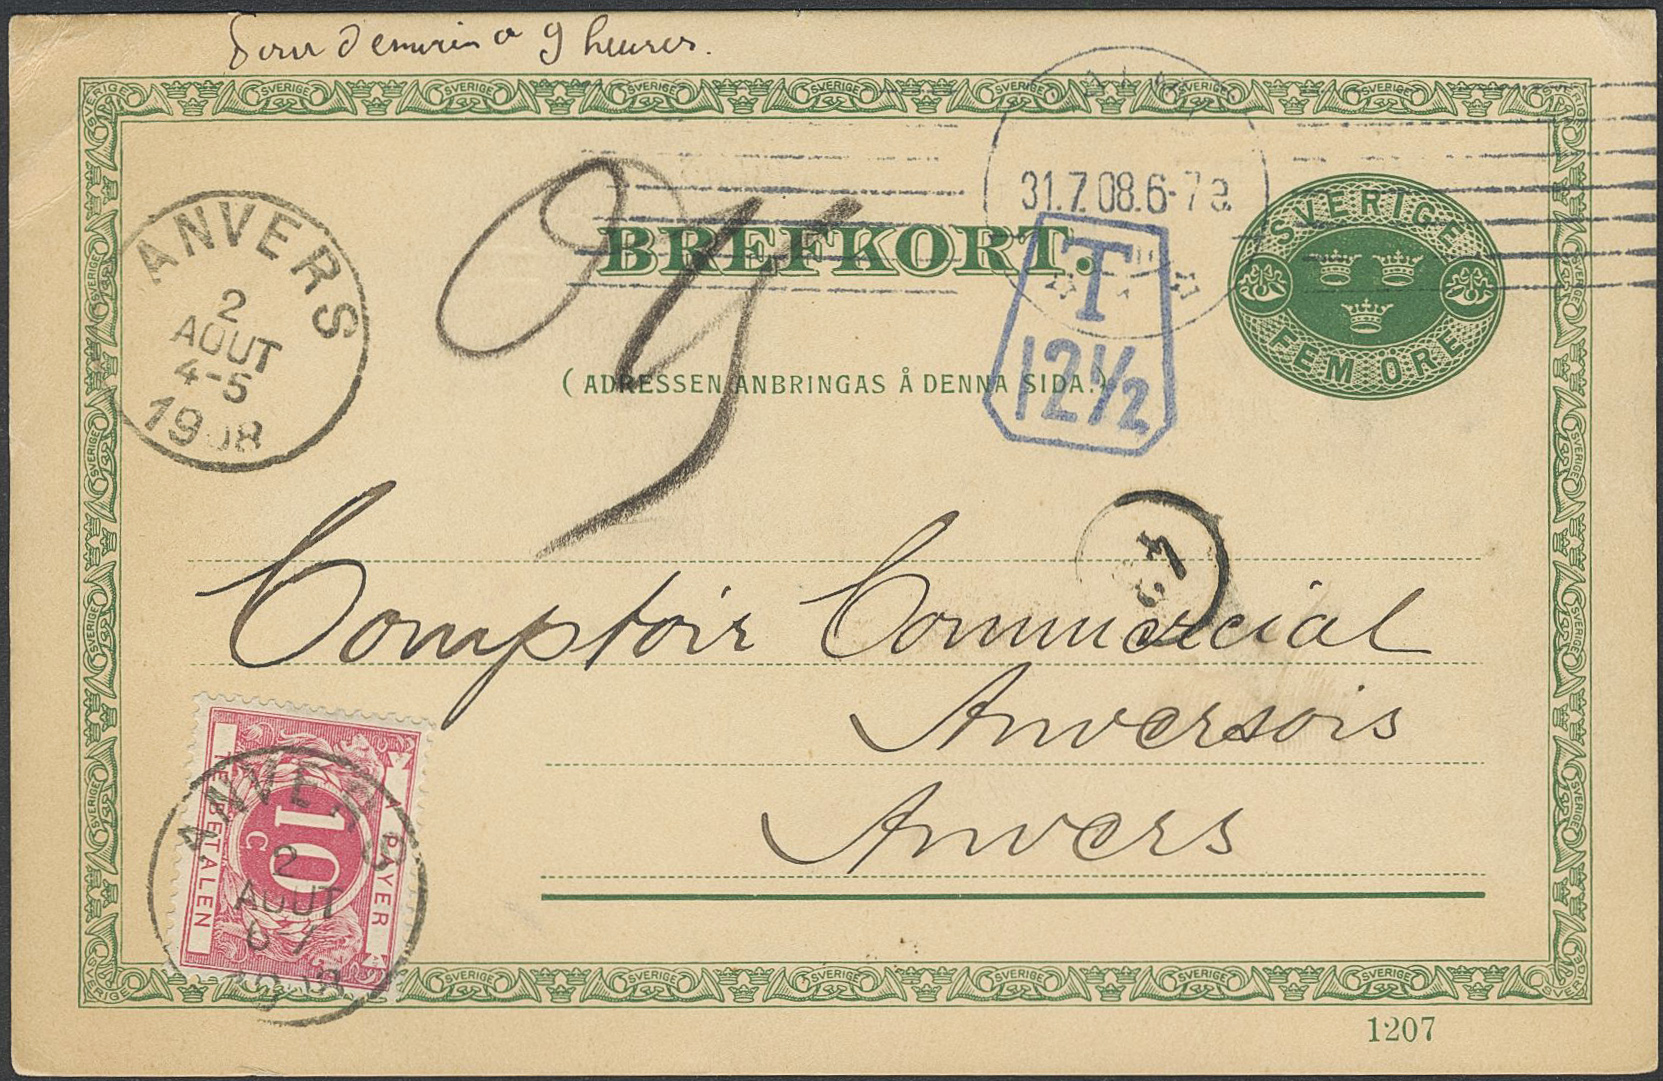 Pour Demain a 9 heures.
BREFKORT.
(ADRESSEN ANBRINGAS Å DENNA SIDA.)
31.7.08.6-7 a.
T
12½
SVERIGE
FEM ÖRE
ANVERS
2
AOUT
4-5
1908
Comptoir Commercial
Anversois
Anvers
A PAYER
10
C
TE BETALEN
ANVERS
2
AOUT
6-7
1908
1207